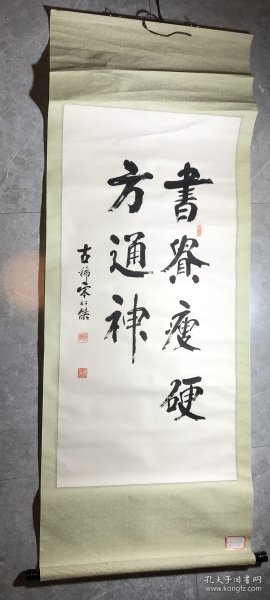 書貴瘦硬
方通神
古稀宋仁傑
孔夫子旧书网
www.kongfz.com